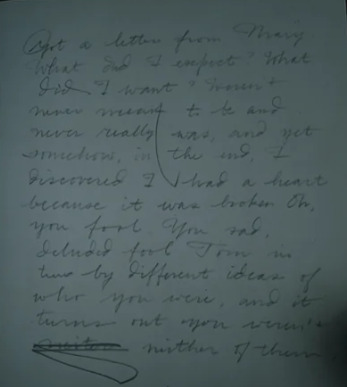 Got a letter from Mary.
What did I expect? What
did I want? Wasn't
never meant to be and
never really was, and yet
somehow, in the end, I
discovered I had a heart
because it was broken Oh,
you fool. You sad,
deluded fool Torn in
two by different ideas of
who you were, and it
turns out you weren't
neither of them